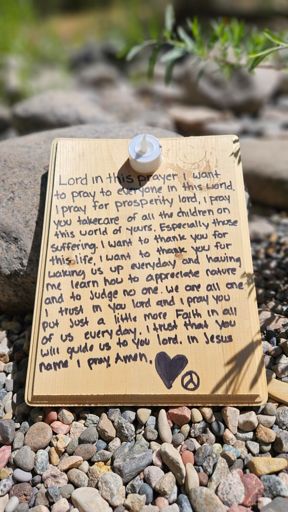 Lord in this prayer I want
to pray to everyone in this world.
I pray for prosperity lord, I pray
you takecare of all the children on
this world of yours. Especially those
suffering. I want to thank you for
this life, I want to thank you fur
waking us up everyday and having
me learn how to appreciate nature
and to judge no one. We are all one
I trust in you Lord and I pray you
put just a little more Faith in all
of us every day. I trust that you
will guide us to you lord. In Jesus
name I pray Amen.